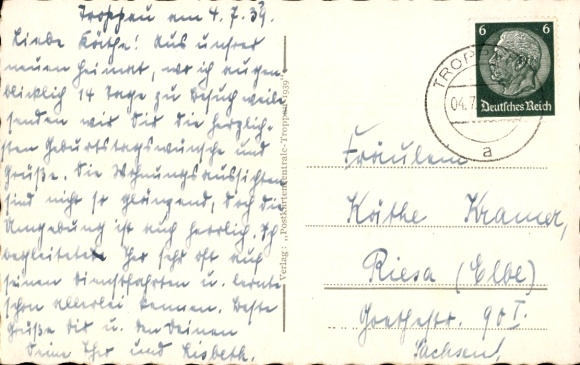 Troppau am 4.7.39.
Liebe Käthe! Aus unsrer
neuen Heimat, wo ich augen-
blicklich 14 Tage zu Besuch weile
senden wir Dir die herzlich-
sten Geburtstagswünsche und
Grüße. Die Wohnungsaussichten
sind nicht so glänzend, doch die
Umgebung ist auch herrlich. Ich
begleitete sehr oft auf
seinen Dienstfahrten u. lernte
schon allerlei kennen. Beste
Grüße Dir u. den Deinen
und Lisbeth.
Verlag: "Postkartenzentrale-Troppau-1939"
6 6
Deutsches Reich
TROPP
04.7
a
Fräulein
Käthe Kramer,
Riesa (Elbe)
Goethestr. 90 I.
Sachsen,